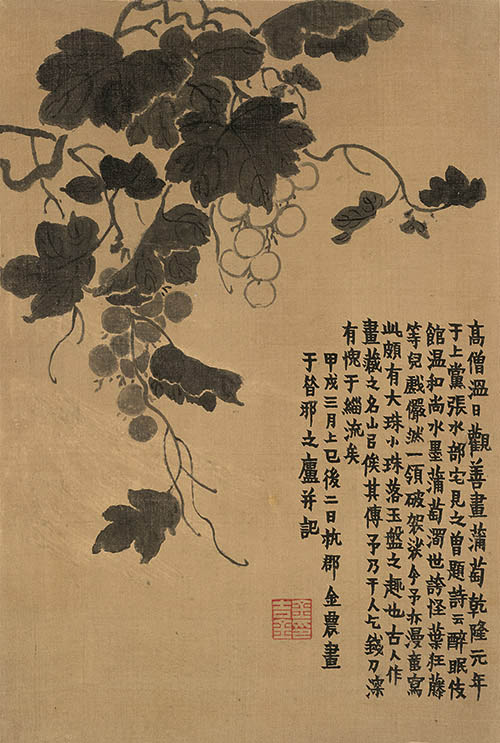 高僧溫日觀善畫蒲萄乾隆元年
于上黨張水部宅見之曾題詩云醉眠伎
館溫和尚水墨蒲萄濁世誇怪葉狂藤
等兒戲儼然一領破袈裟今予亦漫意寫
此頗有大珠小珠落玉盤之趣也古人作
畫藏之名山㠯俟其傳予乃干人乞錢刀深
有愧于緇流矣
甲戌三月上巳後二日杭郡金農畫
于昔邪之廬并記
金印吉金